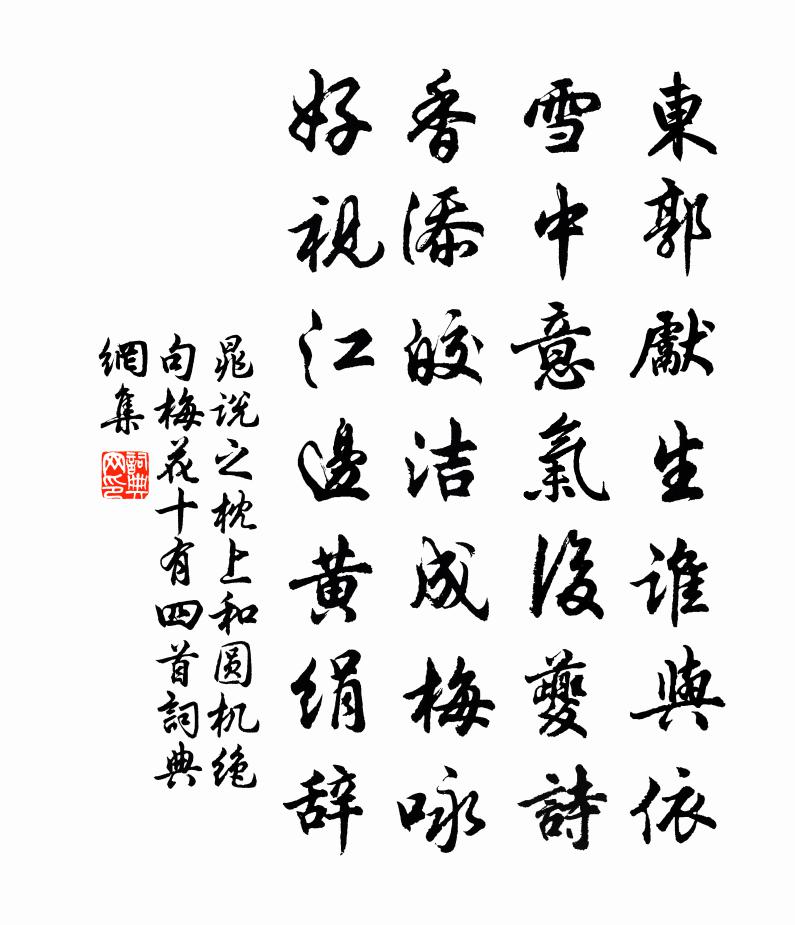 東郭獻生誰與依
雪中意氣後夔詩
香添皎洁成梅咏
好視江邊黄绢辞
晁说之枕上和圆机绝
句梅花十有四首詞典
網集
詞典
网印